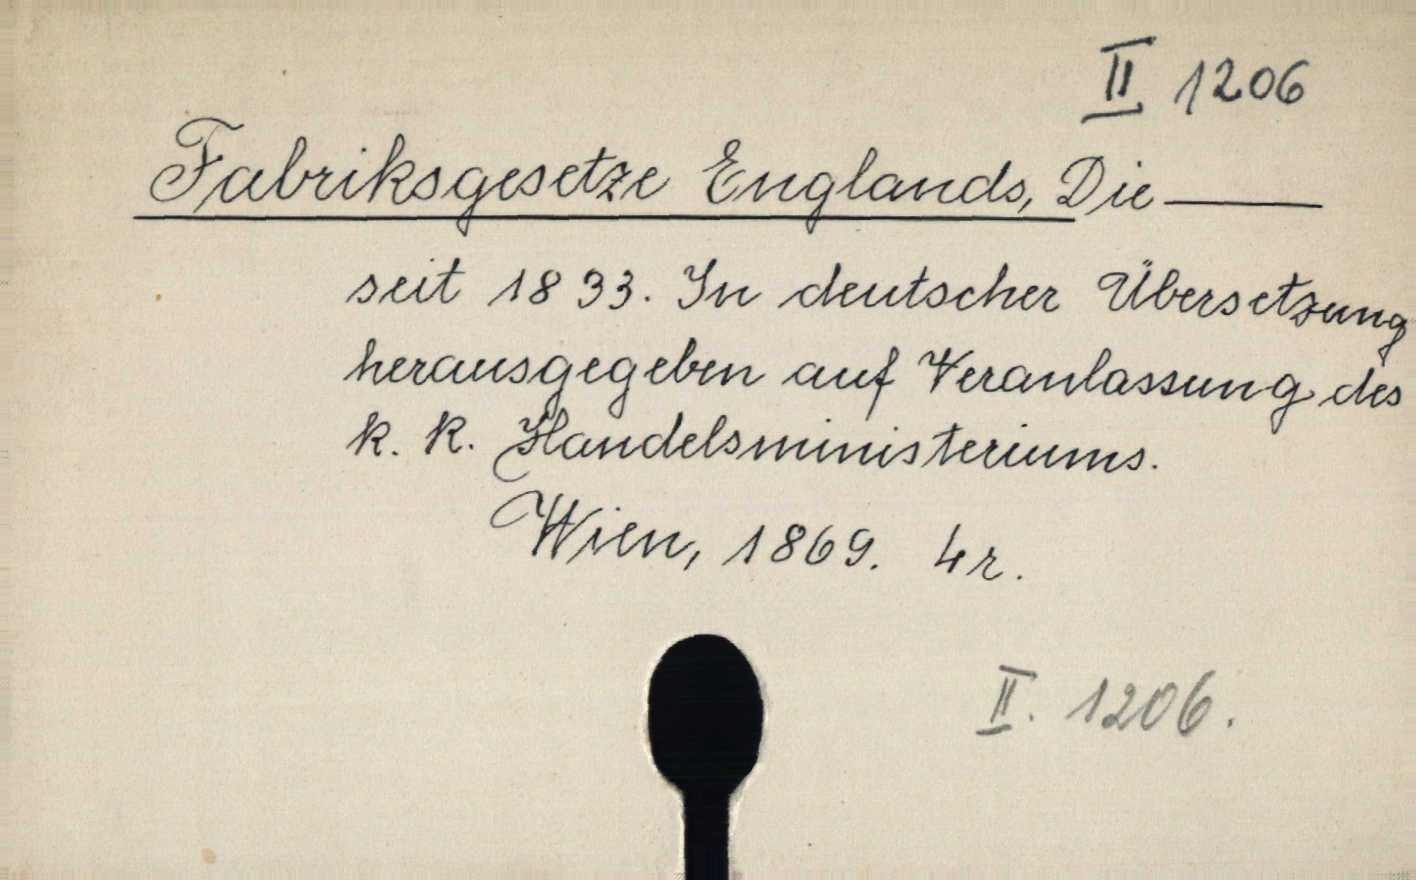 II 1206
Fabriksgesetze Englands, Die ———
seit 1833. In deutscher Übersetzung
herausgegeben auf Veranlassung des
k. k. Handelsministeriums.
Wien, 1869. 4r.
II. 1206.